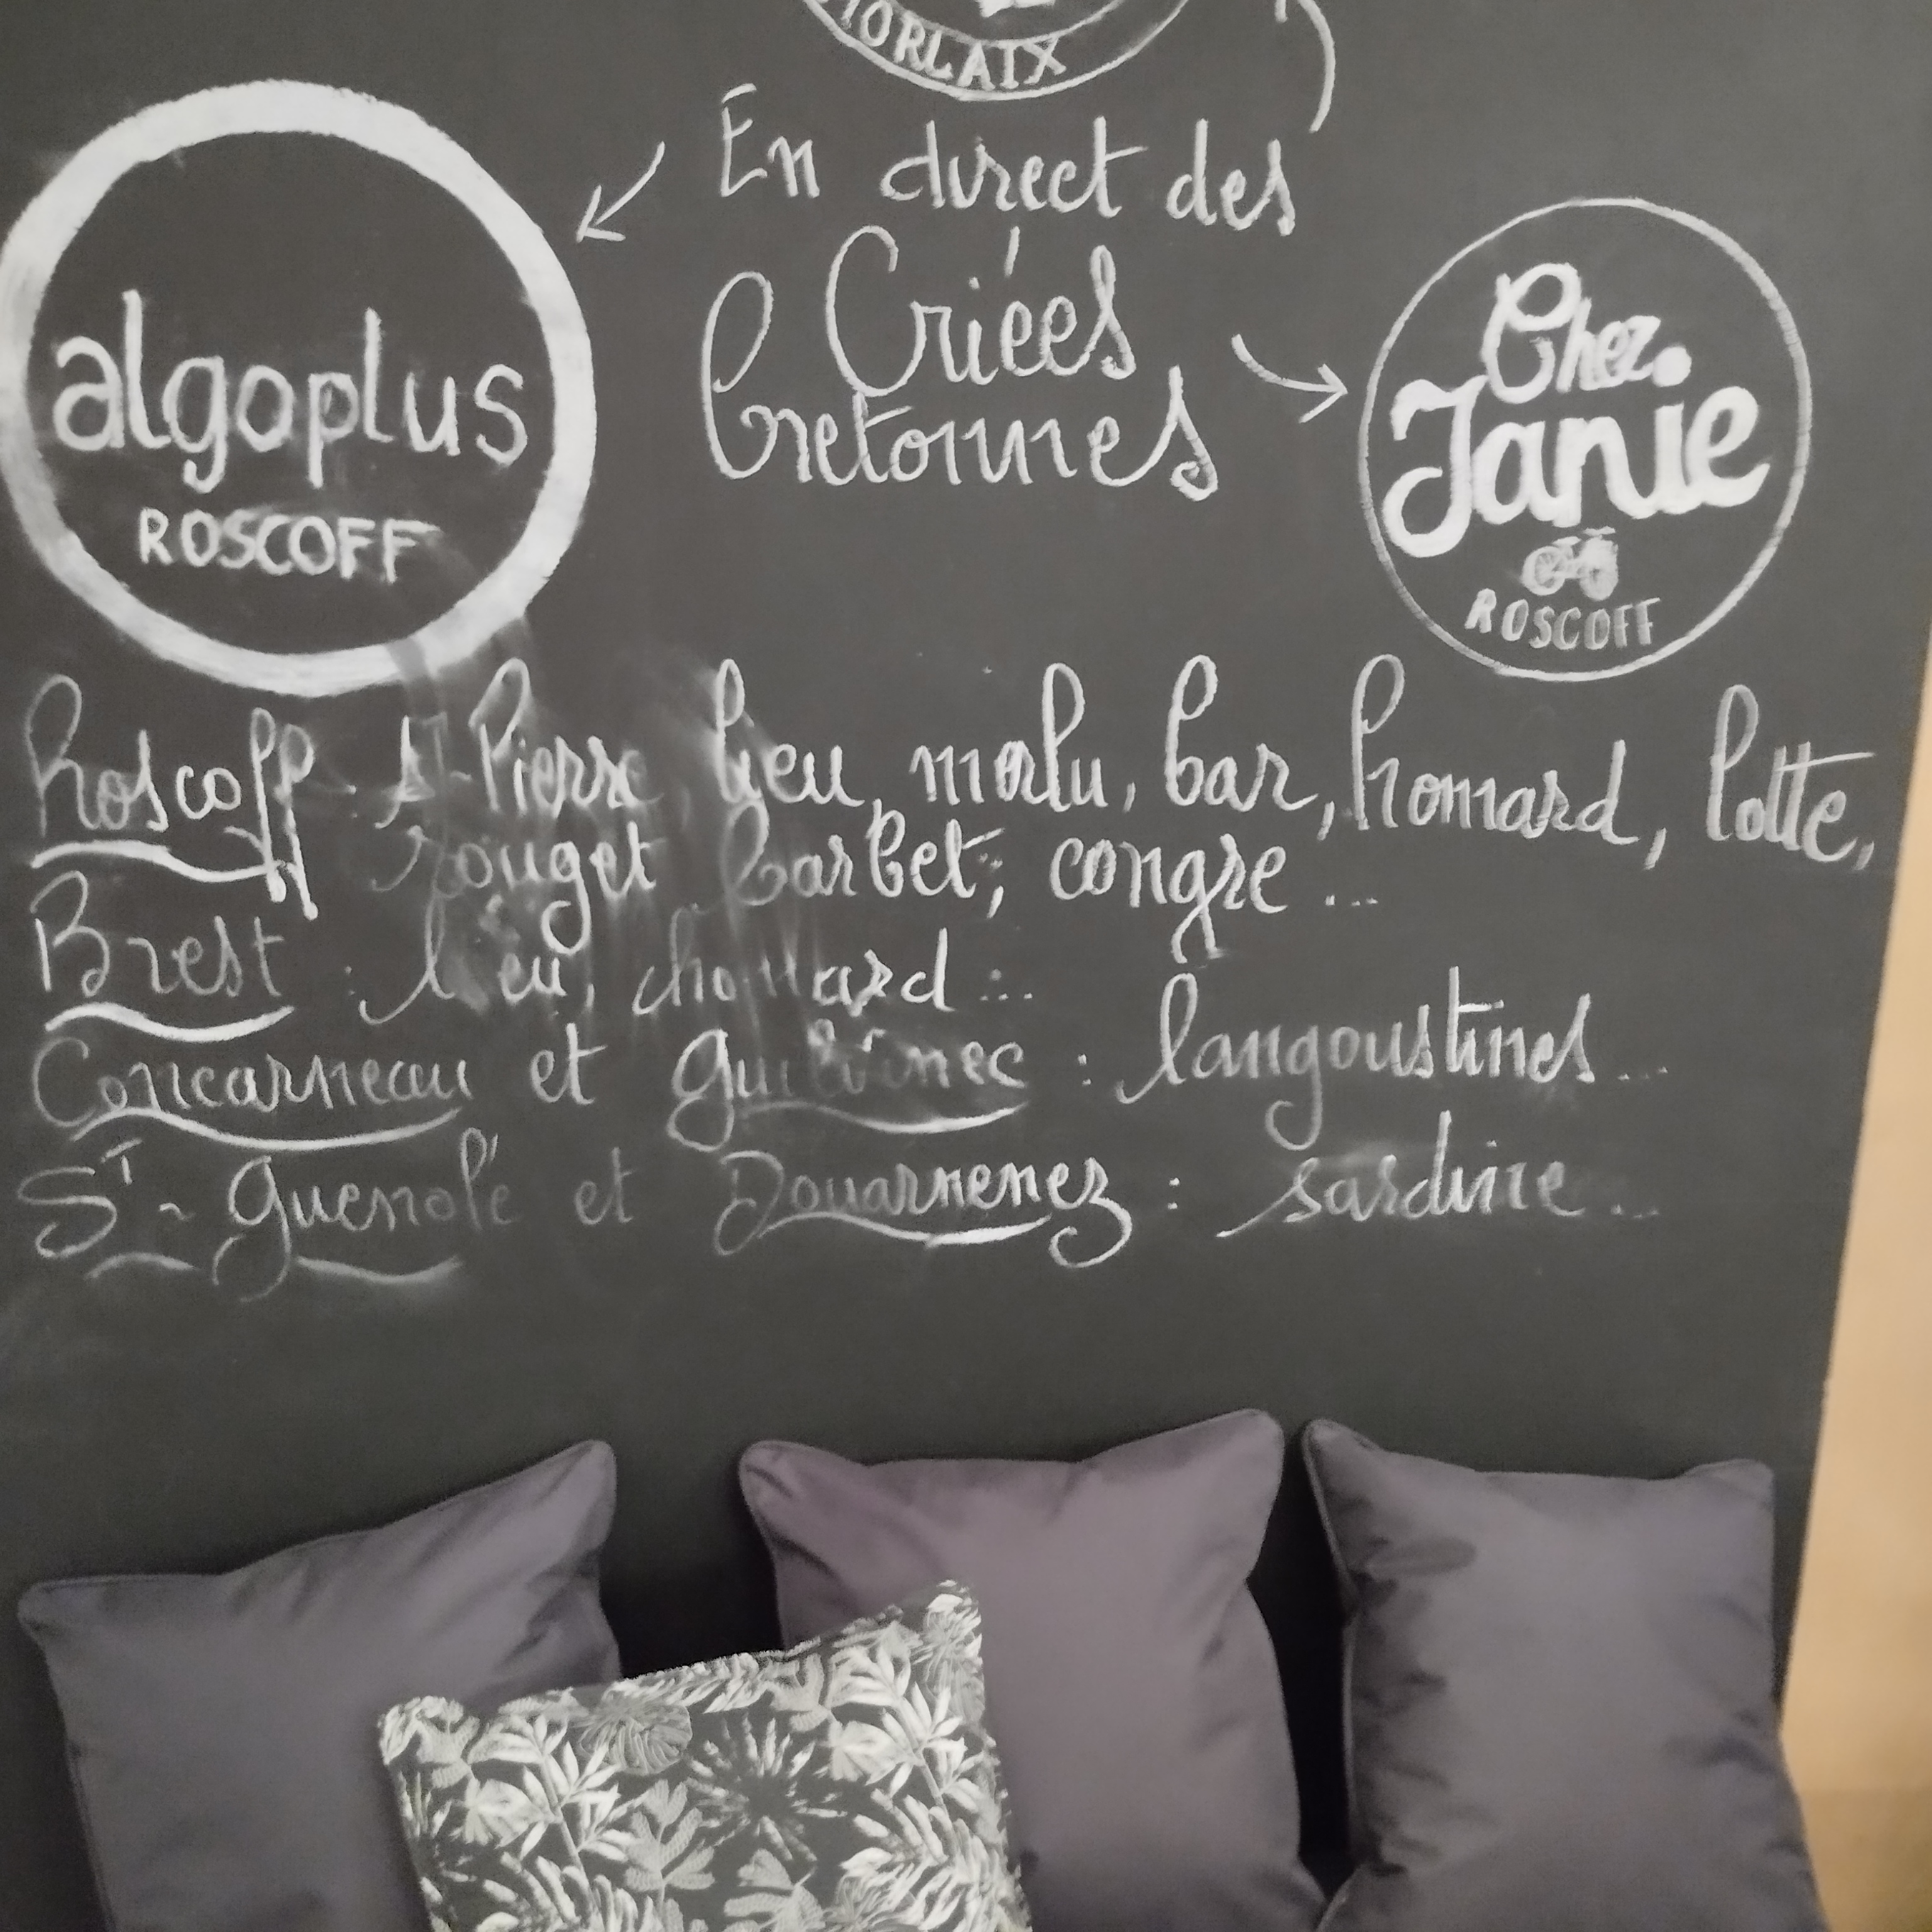 MORLAIX
En direct des
Criées
bretonnes
algoplus
ROSCOFF
Chez
Janie
ROSCOFF
Roscoff : St-Pierre, lieu, merlu, bar, homard, lotte,
rouget barbet, congre ...
Brest : lieu, ...
Concarneau et Guilvinec : langoustines ...
St - Guenolé et Douarnenez : sardine ...